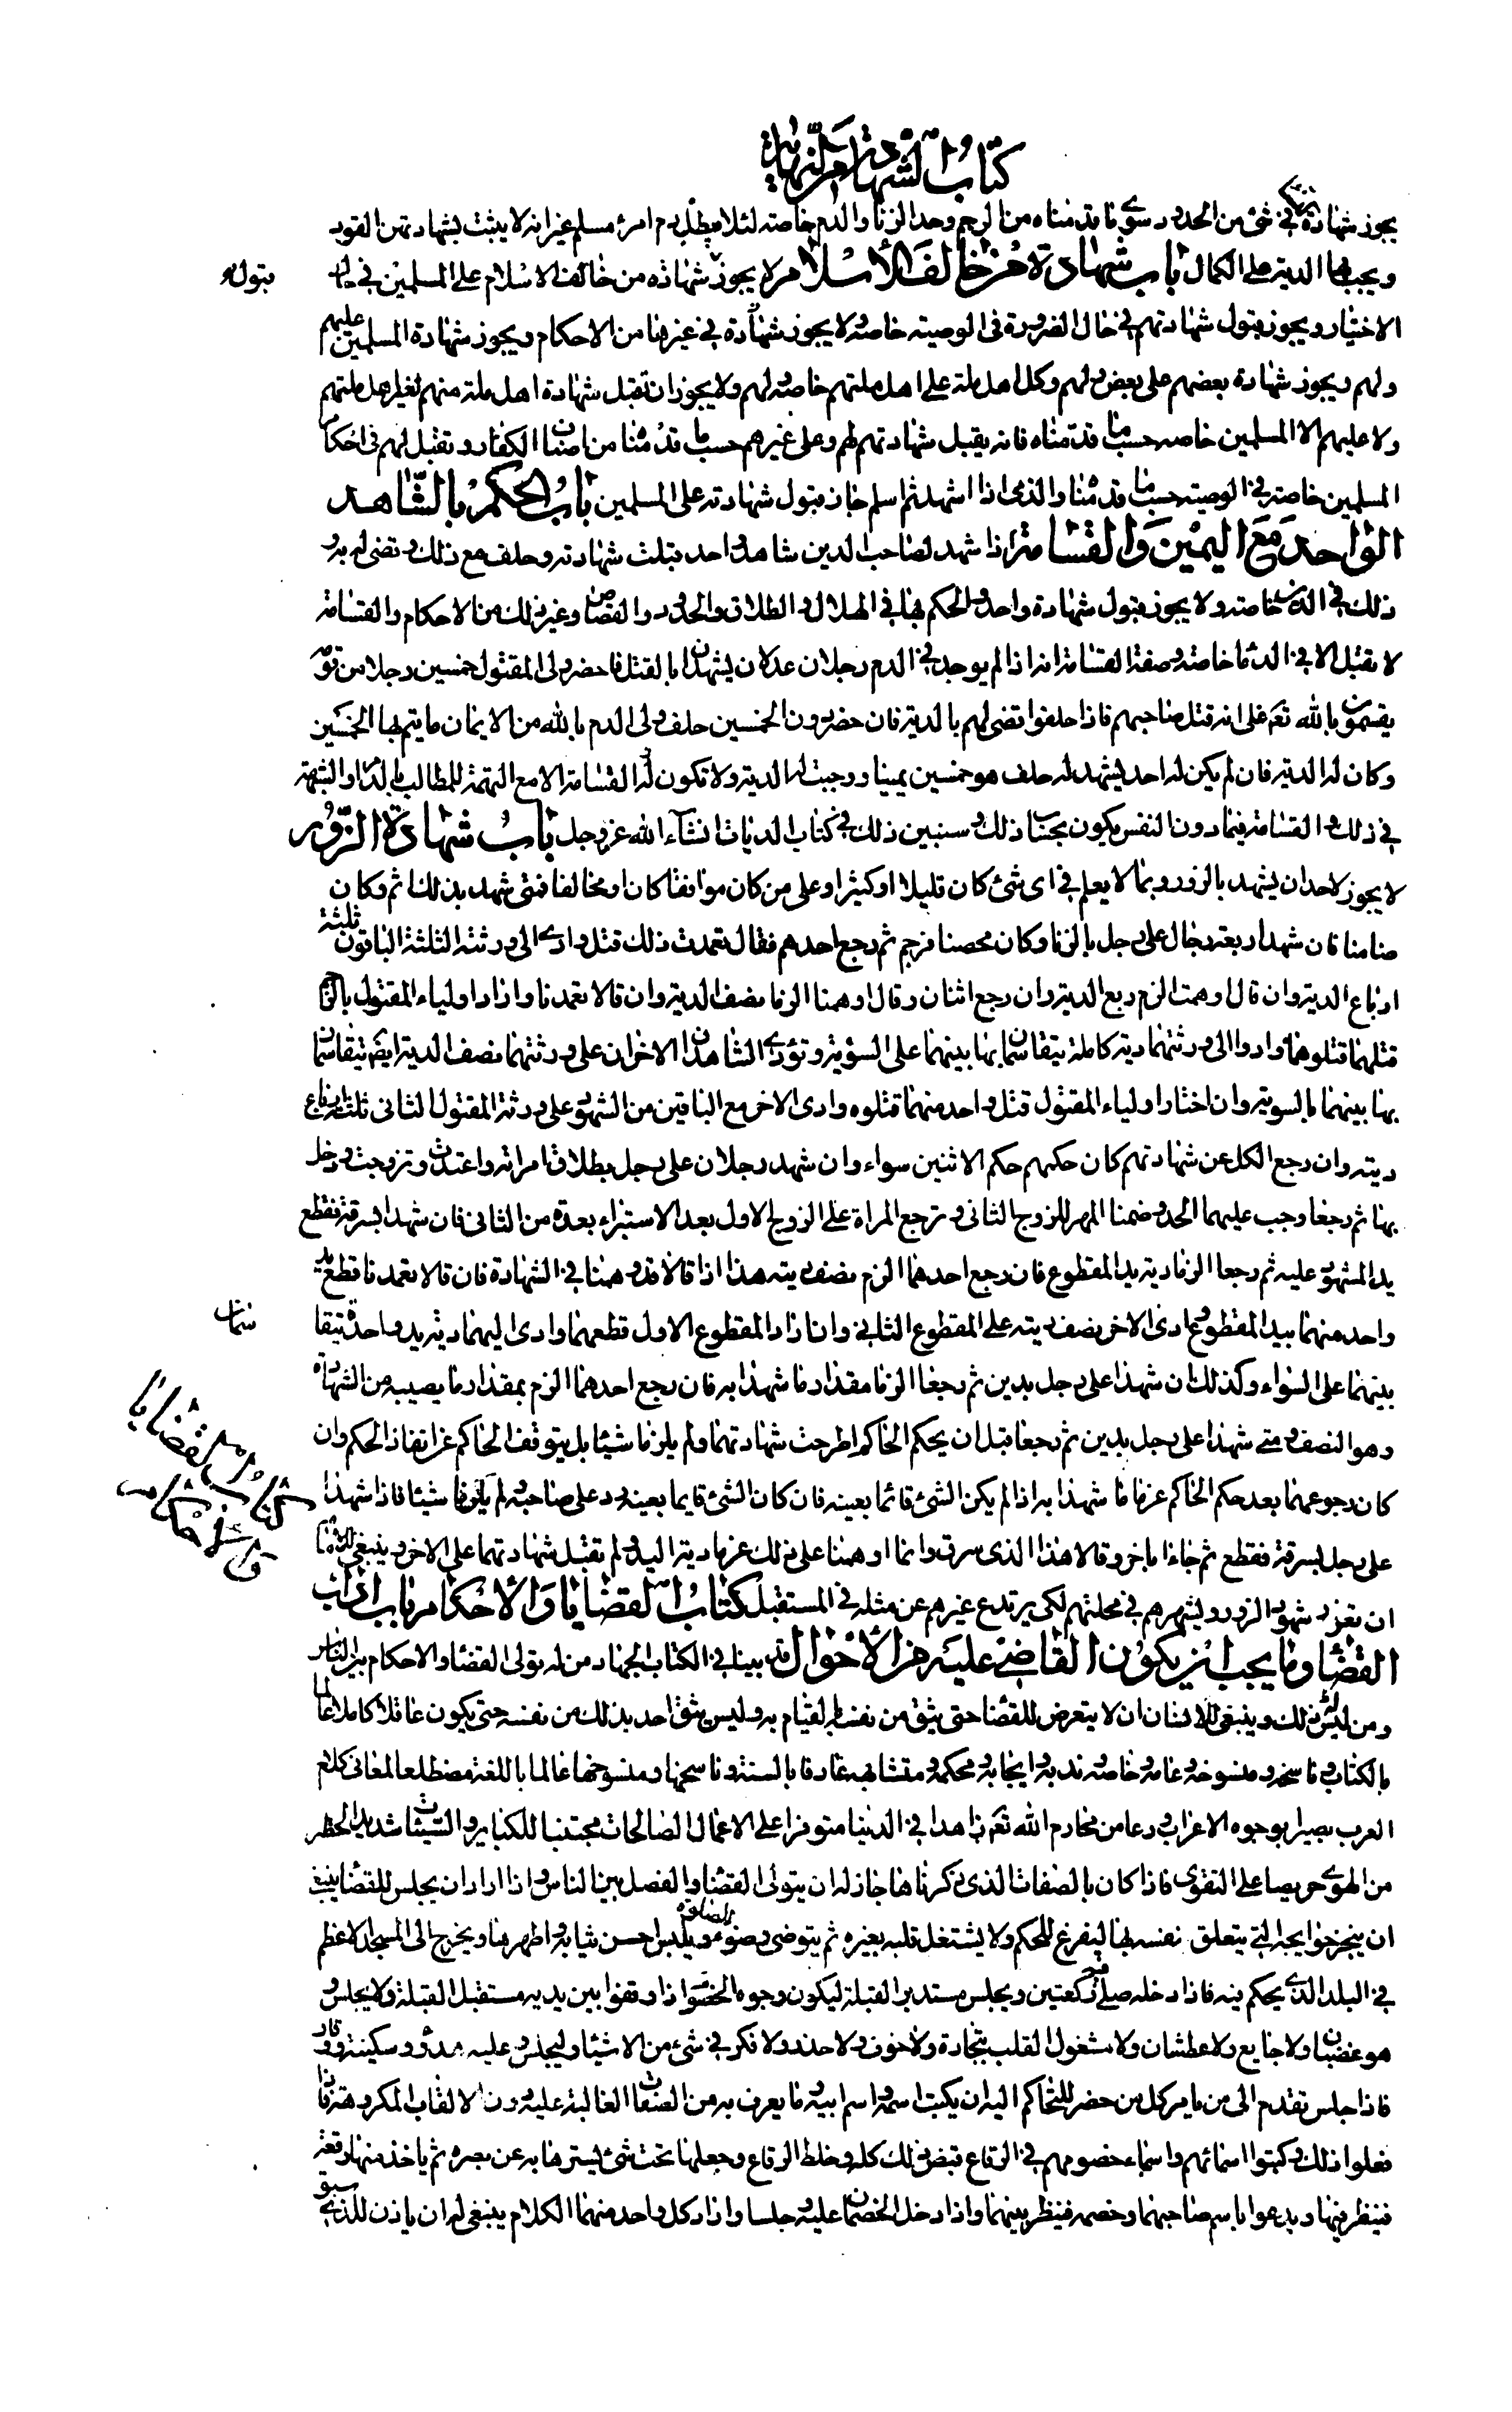 كتاب الشهادة من النهاية
يجوز شهادتهن في شئ من الحدود سوى ما قدمناه من الرجم وحد الزنا والدم خاصة لئلا يبطل دم امرئ مسلم غير انه لا يثبت بشهادتهن القود
ويجب بها الدية على الكمال باب شهادة من خالف الاسلام لا يجوز قبول شهادة من خالف الاسلام على المسلمين في حال
الاختيار ويجوز قبول شهادتهم في حال الضرورة في الوصية خاصة ولا يجوز شهادتهم في غيرها من الاحكام ويجوز شهادة المسلمين عليهم
ولهم ويجوز شهادة بعضهم على بعض ولهم وكل اهل ملة على اهل ملتهم خاصة ولهم ولا يجوز ان تقبل شهادة اهل ملة منهم لغير اهل ملتهم
ولا عليهم الا المسلمين خاصة حسب ما قدمناه فانه يقبل شهادتهم لهم وعلى غيرهم حسب ما قدمنا من اصناف الكفار وتقبل لهم في احكام
المسلمين خاصة في الوصية حسب ما قدمنا والذمي اذا اشهد ثم اسلم جاز قبول شهادته على المسلمين باب الحكم بالشاهد
الواحد مع اليمين والقسامة اذا شهد لصاحب الدين شاهد واحد قبلت شهادته وحلف مع ذلك وقضى له به و
ذلك في الدين خاصة ولا يجوز قبول شهادة واحد والحكم بها في الهلال والطلاق والحدود والقصاص وغير ذلك من الاحكام والقسامة
لا تقبل الا في الدماء خاصة وصفة القسامة انه اذا لم يوجد في الدم رجلان عدلان يشهدان بالقتل فاحضر ولي المقتول خمسين رجلا من قومه
يقسمون بالله تعم على انه قتل صاحبهم فاذا حلفوا قضى لهم بالدية فان حضر دون الخمسين حلف ولي الدم بالله من الايمان ما يتم بها الخمسين
وكان له الدية فان لم يكن له احد يشهد له حلف هو خمسين يمينا ووجبت له الدية ولا تكون القسامة الا مع التهمة للمطالب بالدم او الشبهة
في ذلك والقسامة فيما دون النفس يكون بحساب ذلك وسنبين ذلك في كتاب الديات انشاء الله عز وجل باب شهادة الزور
لا يجوز لاحد ان يشهد بالزور وبما لا يعلم في اي شئ كان قليلا او كثيرا وعلى من كان موافقا كان او مخالفا فمتى شهد بذلك اثم وكان
ضامنا فان شهد اربعة رجال على رجل بالزنا وكان محصنا فرجم ثم رجع احدهم فقال تعمدت ذلك قتل وادى الى ورثته الثلثة الباقون ثلثة
ارباع الدية وان قال اوهمت الزم ربع الدية وان رجع اثنان وقالا اوهمنا الزما نصف الدية وان قالا تعمدنا واراد اولياء المقتول بالرجم
قتلهما قتلوهما وادوا الى ورثتهما دية كاملة يتقاسمان بها بينهما على السوية وتؤدي الشاهدان الاخران على ورثتهما نصف الدية ايضم يتقاسمان
بها بينهما بالسوية وان اختار اولياء المقتول قتل واحد منهما قتلوه وادى الاخر مع الباقين من الشهود على ورثة المقتول الثاني ثلثة ارباع
ديته وان رجع الكل عن شهادتهم كان حكمهم حكم الاثنين سواء وان شهد رجلان على رجل بطلاق امراته واعتدت وتزوجت ودخل
بها ثم رجعا وجب عليهما الحد وضمنا المهر للزوج الثاني وترجع المراة على الزوج الاول بعد الاستبراء بعدة من الثاني فان شهدا بسرقة فقطع
يد المشهود عليه ثم رجعا الزما دية يد المقطوع فان رجع احدهما الزم نصف ديته هذا اذا قالا قد وهمنا في الشهادة فان قالا تعمدنا قطع يد
واحد منهما بيد المقطوع وادى الاخر نصف ديته على المقطوع الثاني وان اراد المقطوع الاول قطعهما وادى اليهما دية يد واحدة يتقاسمان
بينهما على السواء وكذلك ان شهدا على رجل بدين ثم رجعا الزما مقدار ما شهدا به فان رجع احدهما الزم بمقدار ما يصيبه من الشهادة
وهو النصف ومتى شهدا على رجل بدين ثم رجعا قبل ان يحكم الحاكم اطرحت شهادتهما ولم يلزما شيئا بل يتوقف الحاكم عن انفاذ الحكم وان
كان رجوعهما بعد حكم الحاكم غرما ما شهدا به اذا لم يكن الشئ قائما بعينه فان كان الشئ قايما بعينه رد على صاحبه ولم يلزما شيئا فاذا شهدا
على رجل بسرقة فقطع ثم جاءا باخر وقالا هذا الذي سرق وانما اوهمنا على ذلك غرما دية اليد ولم تقبل شهادتهما على الاخر وينبغي للامام
ان يعزر شهود الزور ويشهرهم في محلتهم لكي يرتدع غيرهم عن مثله في المستقبل كتاب القضايا والاحكام باب اداب
القضاء وما يجب ان يكون القاضي عليه من الاحوال قد بينا في الكتاب الجهاد من له تولى القضاء والاحكام بين الناس
ومن ليس له ذلك وينبغي للانسان ان لا يتعرض للقضا حتى يثق من نفسه بالقيام به وليس يثق احد بذلك من نفسه حتى يكون عاقلا كاملا عالما
بالكتاب وناسخه ومنسوخه وعامه وخاصه وندبه وايجابه ومحكمه ومتشابهه عارفا بالسنة وناسخها ومنسوخها عالما باللغة مضطلعا لمعاني كلام
العرب بصيرا بوجوه الاعراب ورعا من محارم الله تعم زاهدا في الدنيا متوفرا على الاعمال الصالحات مجتنبا للكباير والسيئات شديد الحذر
من الهوى حريصا على التقوى فاذا كان بالصفات الذي ذكرناها جاز له ان يتولى القضا والفصل بين الناس واذا اراد ان يجلس للقضا ينبغي
ان ينجز حوايجه التي يتعلق نفسه بها ليفرغ للحكم ولا يشتغل قلبه بغيره ثم يتوضى وضوء الصلوة ويلبس احسن ثيابه واطهرها ويخرج الى المسجد الاعظم
في البلد الذي يحكم فيه فاذا دخله صلى فيه ركعتين ويجلس مستدبر القبلة ليكون وجوه الخصوم اذا وقفوا بين يديه مستقبل القبلة ولا يجلس و
هو غضبان ولا جايع ولا عطشان ولا مشغول القلب بتجارة ولا خوف ولا حذر ولا فكر في شئ من الاشياء وليجلس وعليه هدو وسكينة ووقار
فاذا جلس تقدم الى من يامر كل من حضر للتحاكم اليه ان يكتب اسمه واسم ابيه وما يعرف به من الصفات الغالبة عليه دون الالقاب المكروهة فاذا
فعلوا ذلك وكتبوا اسمائهم واسماء خصومهم في الرقاع قبض ذلك كله وخلط الرقاع وجعلها تحت شئ يسترها به عن بصره ثم ياخذ منها رقعة
فينظر فيها ويدعوا باسم صاحبهما وخصمه فينظر بينهما واذا دخل الخصمان عليه وجلسا واراد كل واحد منهما الكلام ينبغي له ان ياذن للذي سبق
كتاب القضايا
والاحكام